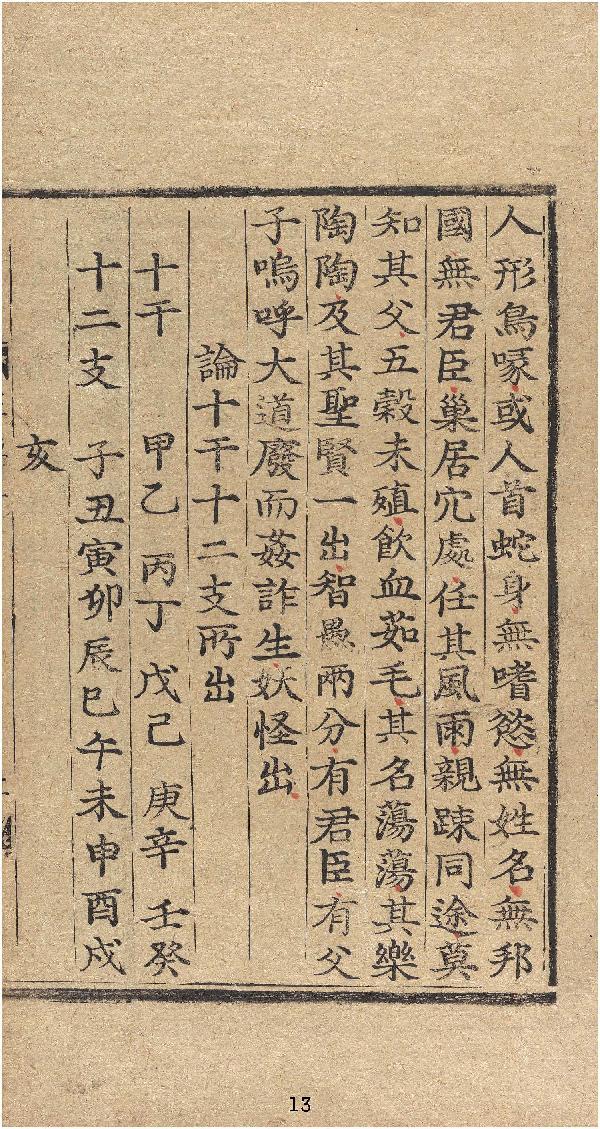 人形鳥喙或人首蛇身無嗜慾無姓名無邦
國無君臣巢居穴處任其風雨親踈同途莫
知其父五穀未殖飲血茹毛其名蕩蕩其樂
陶陶及其聖賢一出智愚兩分有君臣有父
子嗚呼大道廢而姦詐生妖怪出
論十干十二支所出
十干 甲乙 丙丁 戊己 庚辛 壬癸
十二支 子丑寅卯辰巳午未申酉戌
亥
13